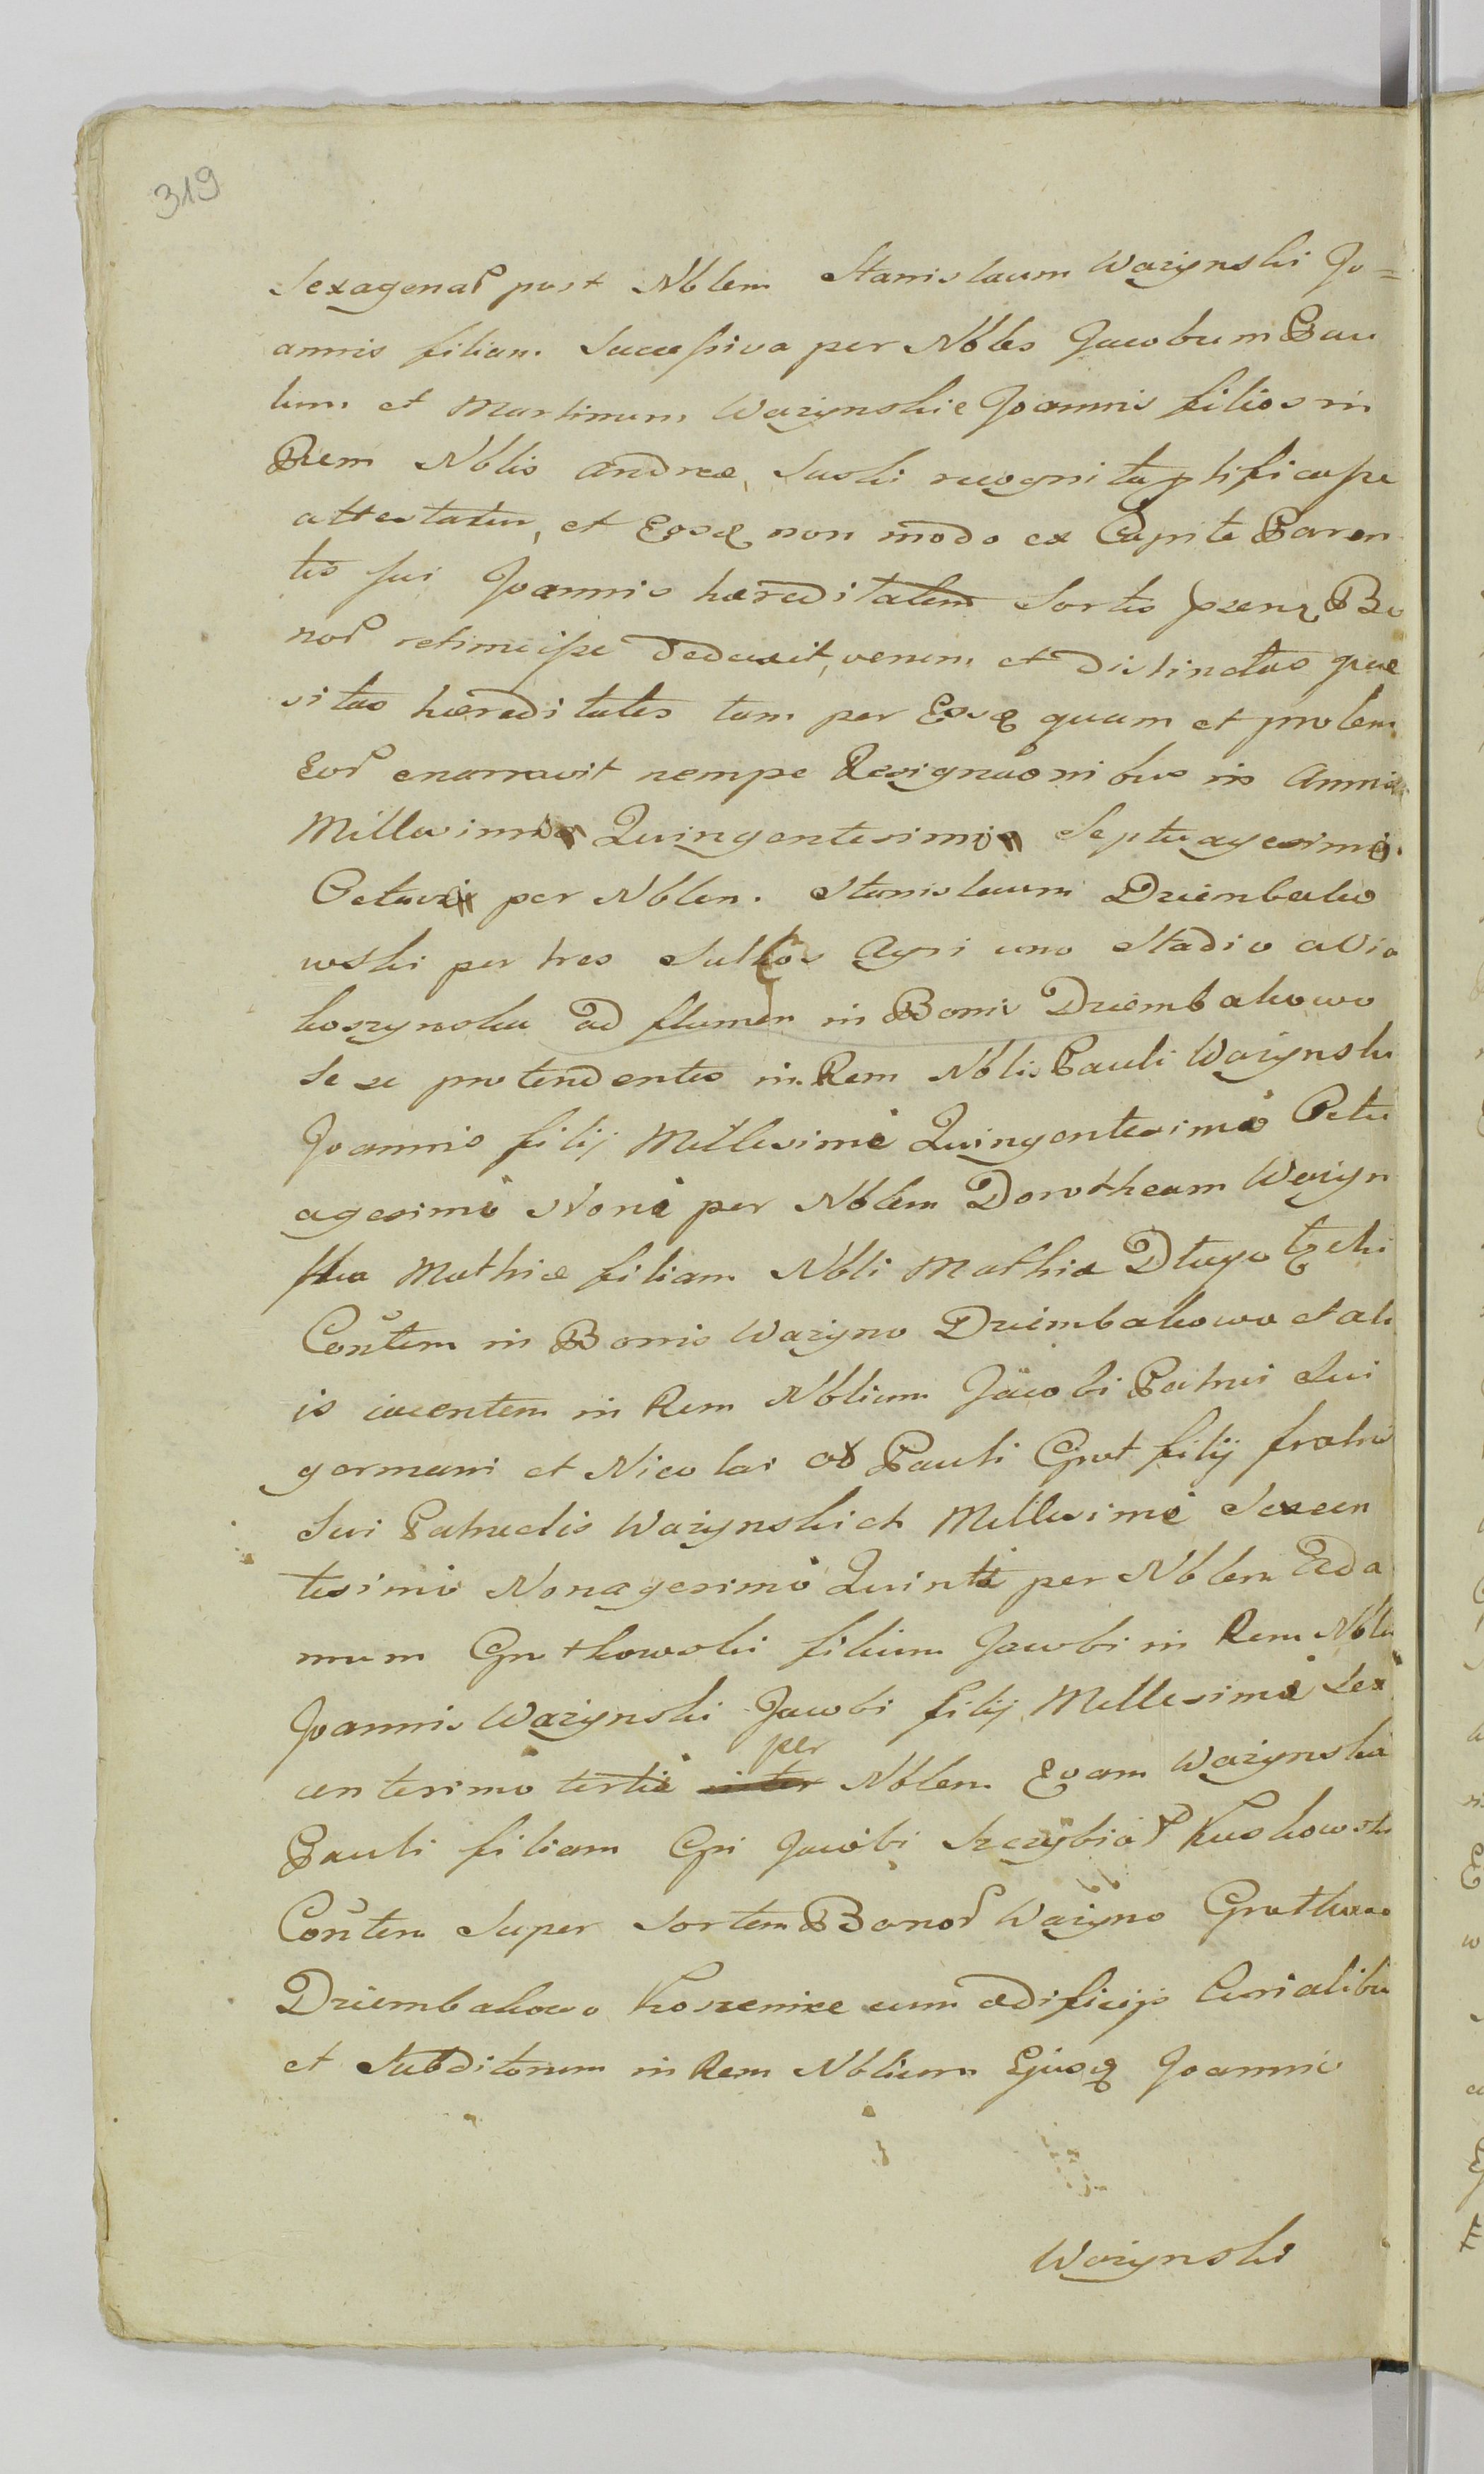 319
Sexagenar post Nblem Stanislaum Wazynski Jo=
annis filium Successiva per Nbles Jacobum Pau
lum et Martinum Wazynskie Joannis filios in
Rem Nblis Andreæ Suski recognita
attestatur, et Eosq non modo ex Capite Paren
tis sui Joannis hæreditatem Sortis Bo
nor retinuisse deduxit, verum et distinctas quæ
sitas hæreditates tam per Eosq quam et prolem
Eor enarravit nempe Resignaonibus in Annis
Millesimo Quingentesimo Septuagesimo
Octavo per Nblem. Stanislaum Dziembako
wski per tres Sulkos Agri uno Stadio a Via
koszynska ad flumen in Bonis Dziembakowo
se se protendentes in Rem Nblis Pauli Wazynski
Joannis filij Millesimo Quingentesimo Octu
agesimo Nono per Nblem Dorotheam Wazyn
ska Mathiæ filiam Nbli Mathiæ
Contem in Bonis Wazyno Dziembakowo et ali
is iacentem in Rem Nblium Jacobi Patrui Sui
germani et Nicolai ac Pauli filij fratris
Sui Patruelis Wazynskich Millesimo Sexcen
tesimo Nonagesimo Quinto per Nblem Ada
mum Grutkowski filium Jacobi in Rem Nblis
Joannis Wazynski Jacobi filij Millesimo Sex
centesimo tertio inter per Nblem Evam Wazynska
Pauli filiam Jacobi Kuskowski
Contem Super Sortem Bonor Wazyno Grutkowo
Dziembakowo Koszenice cum ædificijs Curialibus
et Subditorum in Rem Nblium Ejusq Joannis
Wazynski